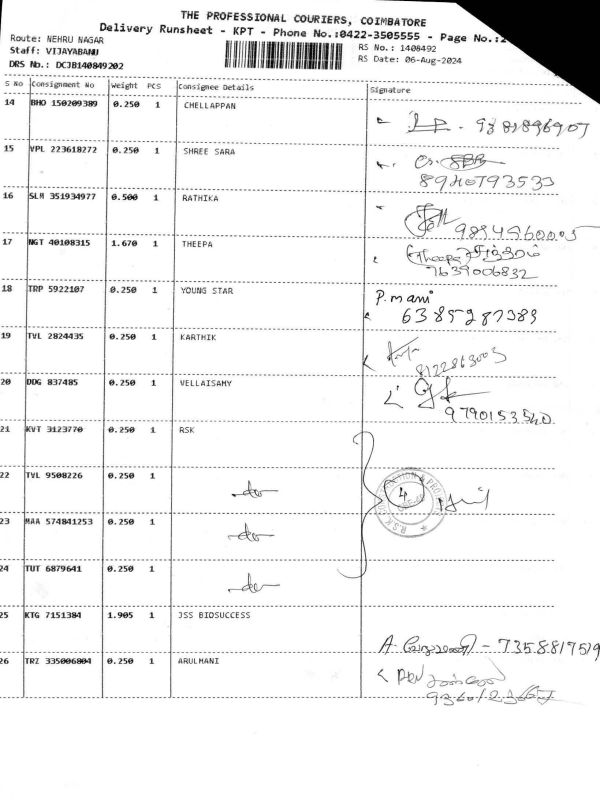 THE PROFESSIONAL COURIERS, COIMBATORE
Delivery Runsheet - KPT - Phone No.:0422-3505555 - Page No.:2
Route: NEHRU NAGAR
RS No.: 1408492
Staff: VIJAYABANU
RS Date: 06-Aug-2024
DRS No.: DCJB140849202
S No Consignment No Weight PCS Consignee Details Signature
14 BHO 150209389 0.250 1 CHELLAPPAN
15 VPL 223618272 0.250 1 SHREE SARA
16 SLM 351934977 0.500 1 RATHIKA
17 NGT 40108315 1.670 1 THEEPA Theepa
7639006832
18 TRP 5922107 0.250 1 YOUNG STAR P.mani
6385287389
19 TVL 2824435 0.250 1 KARTHIK
8122863003
20 DDG 837485 0.250 1 VELLAISAMY
9790153540
21 KVT 3123770 0.250 1 RSK
22 TVL 9508226 0.250 1 -do- 4
23 MAA 574841253 0.250 1 -do-
24 TUT 6879641 0.250 1 -do-
25 KTG 7151384 1.905 1 JSS BIOSUCCESS
26 TRZ 335006804 0.250 1 ARULMANI